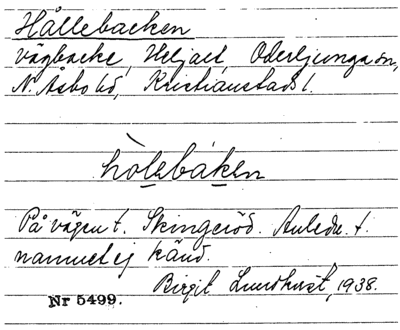 Hållebacken
vägbacke, Heljalt, Oderljunga sn,
N. Åsbo hd, Kristianstads l.
hòlebáken
På vägen t. Skingeröd. Anledn. t.
namnet ej känd.
Birgit Lundkvist, 1938.
Nr 5499.